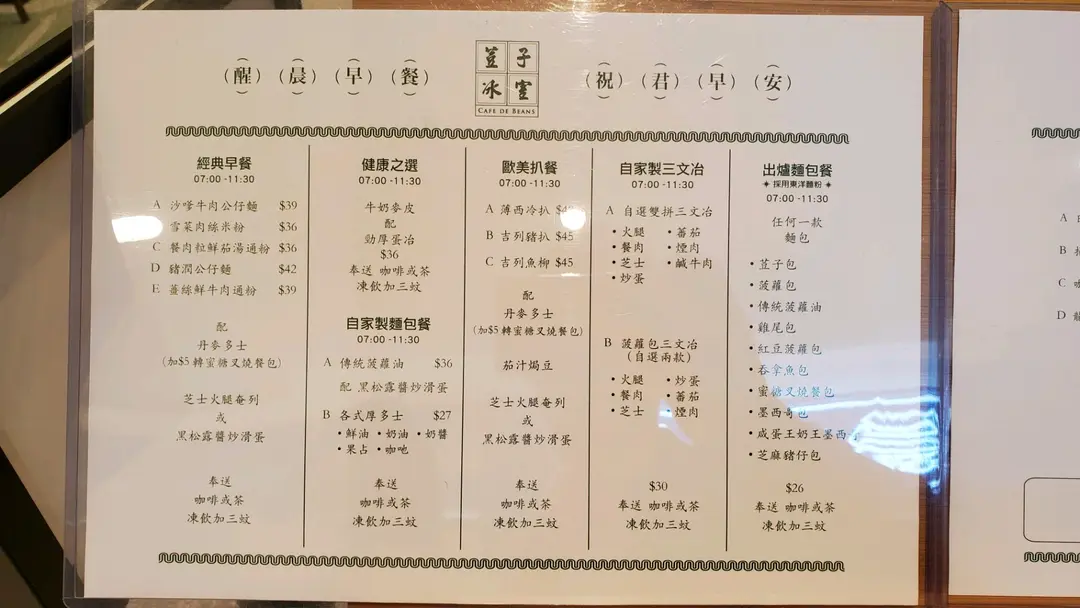 (醒)(晨)(早)(餐)
荳子
冰室
CAFE DE BEANS
(祝)(君)(早)(安)
經典早餐
07:00 -11:30
A 沙嗲牛肉公仔麵 $39
雪菜肉絲米粉 $36
C 餐肉粒鮮茄湯通粉 $36
D 豬潤公仔麵 $42
E 薑絲鮮牛肉通粉 $39
配
丹麥多士
(加$5 轉蜜糖叉燒餐包)
芝士火腿奄列
或
黑松露醬炒滑蛋
奉送
咖啡或茶
凍飲加三蚊
健康之選
07:00 -11:30
牛奶麥皮
配
勁厚蛋治
$36
奉送 咖啡或茶
凍飲加三蚊
自家製麵包餐
07:00 -11:30
A 傳統菠蘿油 $36
配 黑松露醬炒滑蛋
B 各式厚多士 $27
•鮮油 •奶油 •奶醬
•果占 •咖吔
奉送
咖啡或茶
凍飲加三蚊
歐美扒餐
07:00 -11:30
A 薄西冷扒
B 吉列豬扒 $45
C 吉列魚柳 $45
配
丹麥多士
(加$5 轉蜜糖叉燒餐包)
茄汁焗豆
芝士火腿奄列
或
黑松露醬炒滑蛋
奉送
咖啡或茶
凍飲加三蚊
自家製三文治
07:00 -11:30
A 自選雙拼三文治
•火腿 •蕃茄
•餐肉 •煙肉
•芝士 •鹹牛肉
•炒蛋
B 菠蘿包三文治
(自選兩款)
•火腿 •炒蛋
•餐肉 •蕃茄
•芝士 •煙肉
$30
奉送 咖啡或茶
凍飲加三蚊
出爐麵包餐
採用東洋麵粉
07:00 -11:30
任何一款
麵包
•荳子包
•菠蘿包
•傳統菠蘿油
•雞尾包
•紅豆菠蘿包
•吞拿魚包
•蜜糖叉燒餐包
•墨西哥包
•咸蛋王奶王墨西
•芝麻豬仔包
$26
奉送 咖啡或茶
凍飲加三蚊
A
B
C
D